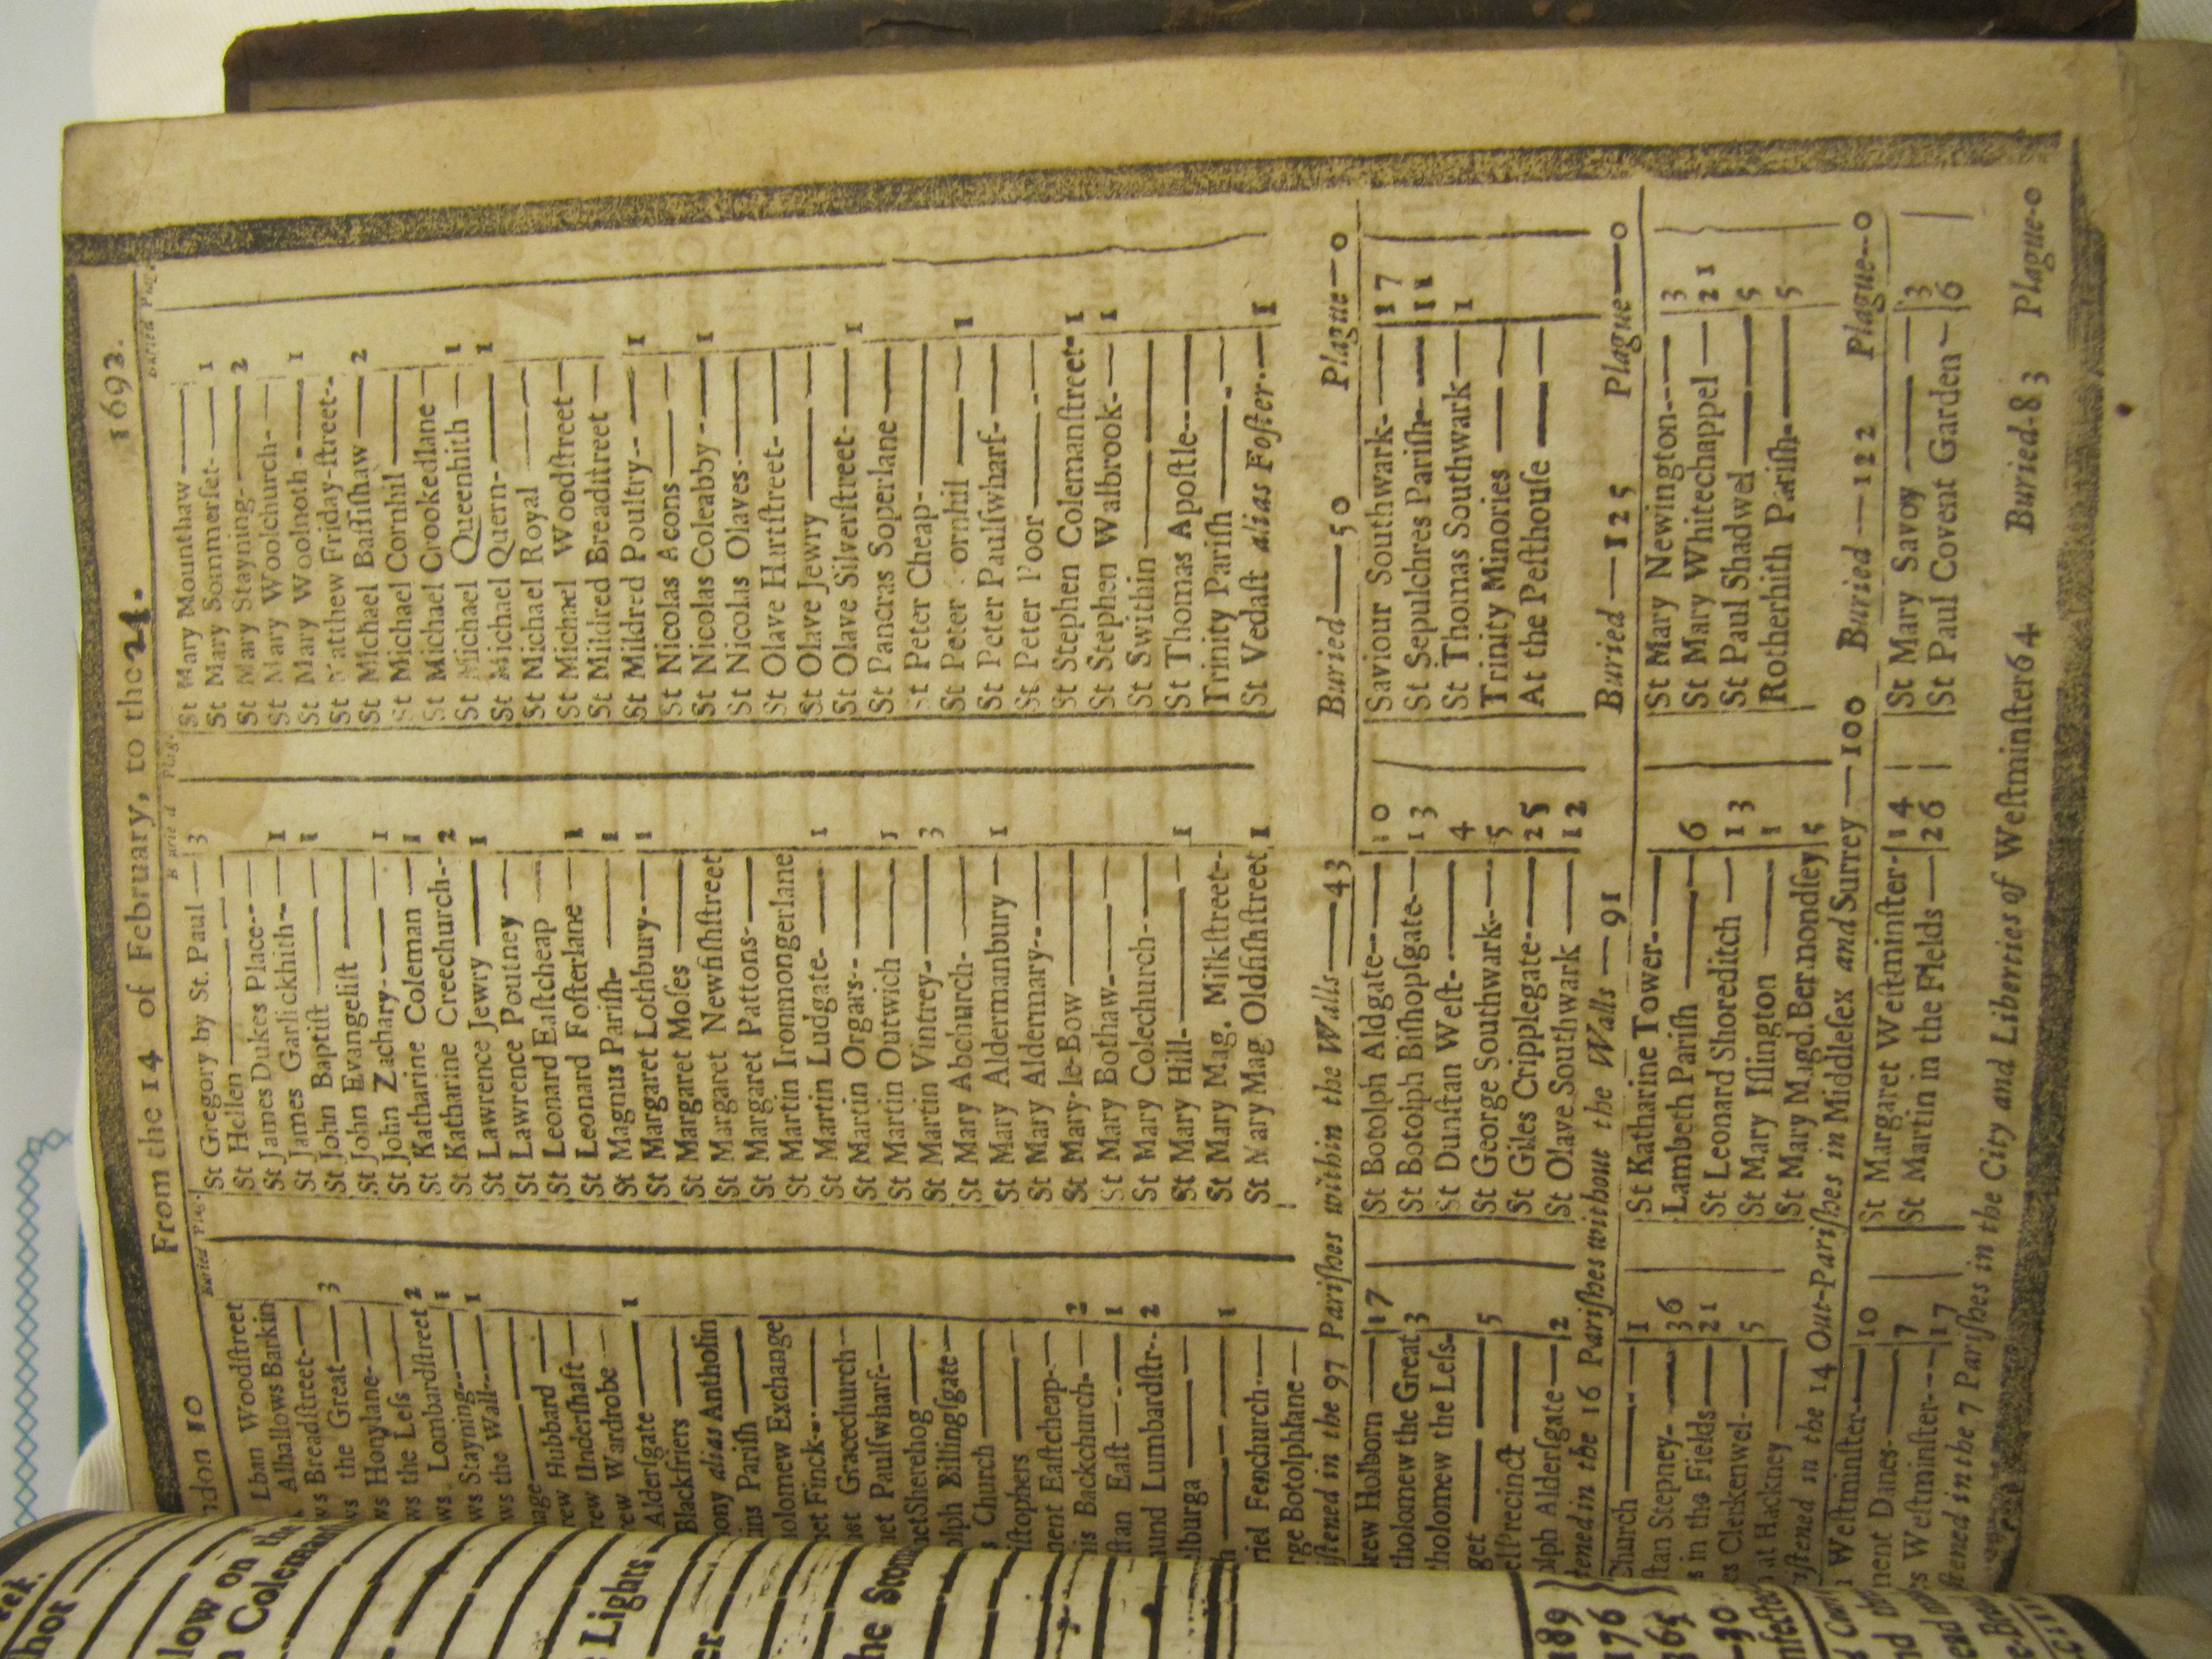 ndon 10 From the 14 of February, to the 21. 1692.
Buried Plag. Buried Plag. Buried Plag.
Lban Woodſtreet
Alhallows Barkin
ws Breadſtreet-
ws the Great 3
ws Honylane-
ws the Leſs 2
ws Lombardſtreet 1
ws Stayning- 1
ws the Wall-
nage
rew Hubbard
rew Underſhaft
rew Wardrobe 1
Alderſgate
Blackfriers
hony alias Antholin
ins Pariſh
holomew Exchange
net Finck-
net Gracechurch
net Paulſwharf-
netSherehog
olph Billingſgate
s Church
iſtophers
nent Eaſtcheap- 2
nis Backchurch- 1
ſtan Eaſt 2
und Lumbardſtr-
lburga 1
riel Fenchurch
rge Botolphlane
St Gregory by St. Paul 3
St Hellen
St James Dukes Place-
St James Garlickhith- 1
St John Baptiſt 1
St John Evangeliſt
St John Zachary- 1
St Katharine Coleman 1
St Katharine Creechurch- 2
St Lawrence Jewry 1
St Lawrence Poutney
St Leonard Eaſtcheap
St Leonard Foſterlane 1
St Magnus Pariſh- 1
St Margaret Lothbury- 1
St Margaret Moſes
St Margaret Newfiſhſtreet
St Margaret Pattons-
St Martin Ironmongerlane
St Martin Ludgate- 1
St Martin Orgars-
St Martin Outwich 1
St Martin Vintrey- 3
St Mary Abchurch-
St Mary Aldermanbury 1
St Mary Aldermary-
St Mary-le-Bow
St Mary Bothaw-
St Mary Colechurch-
St Mary Hill- 1
St Mary Mag. Milkſtreet-
St Mary Mag Oldfiſhſtreet 1
St Mary Mounthaw
St Mary Sommerſet- 1
St Mary Stayning- 2
St Mary Woolchurch-
St Mary Woolnoth 1
St Matthew Friday-ſtreet-
St Michael Baſſiſhaw 2
St Michael Cornhil
St Michael Crookedlane
St Michael Queenhith 1
St Michael Quern- 1
St Michael Royal
St Michael Woodſtreet
St Mildred Breadſtreet
St Mildred Poultry- 1
St Nicolas Acons
St Nicolas Coleabby 1
St Nicolas Olaves
St Olave Hartſtreet-
St Olave Jewry
St Olave Silverſtreet- 1
St Pancras Soperlane
St Peter Cheap-
St Peter ornhil 1
St Peter Paulſwharf-
St Peter Poor
St Stephen Colemanſtreet- 1
St Stephen Walbrook- 1
St Swithin
St Thomas Apoſtle-
Trinity Pariſh
St Vedaſt alias Foſter- 1
iſtened in the 97 Pariſhes within the Walls—43 Buried—50 Plague—0
rew Holborn 17
tholomew the Great 3
tholomew the Leſs-
get 5
ell Precinct
olph Alderſgate 2
St Botolph Aldgate- 10
St Botolph Biſhopſgate- 13
St Dunſtan Weſt- 4
St George Southwark- 5
St Giles Cripplegate- 25
St Olave Southwark 12
Saviour Southwark- 17
St Sepulchres Pariſh- 11
St Thomas Southwark 1
Trinity Minories
At the Peſthouſe
tened in the 16 Pariſhes without the Walls—91 Buried—125 Plague—0
Church 1
ſtan Stepney- 36
s in the Fields 21
es Clerkenwel- 5
n at Hackney
St Katharine Tower-
Lambeth Pariſh 6
St Leonard Shoreditch 13
St Mary Iſlington 1
St Mary Magd. Bermondſey 5
St Mary Newington- 3
St Mary Whitechappel 21
St Paul Shadwel 5
Rotherhith Pariſh- 5
iſtened in the 14 Out-Pariſhes in Middleſex and Surrey—100 Buried—122 Plague-0
Weſtminſter 10
nent Danes 7
es Weſtminſter 17
St Margaret Weſtminſter- 14
St Martin in the Fields 26
St Mary Savoy 3
St Paul Covent Garden 6
ſtened in the 7 Pariſhes in the City and Liberties of Weſtminſter 64 Buried-83 Plague-0
thor
low on the
n Coleman
Lights
er
he Stom
189
176
365
30
nfected